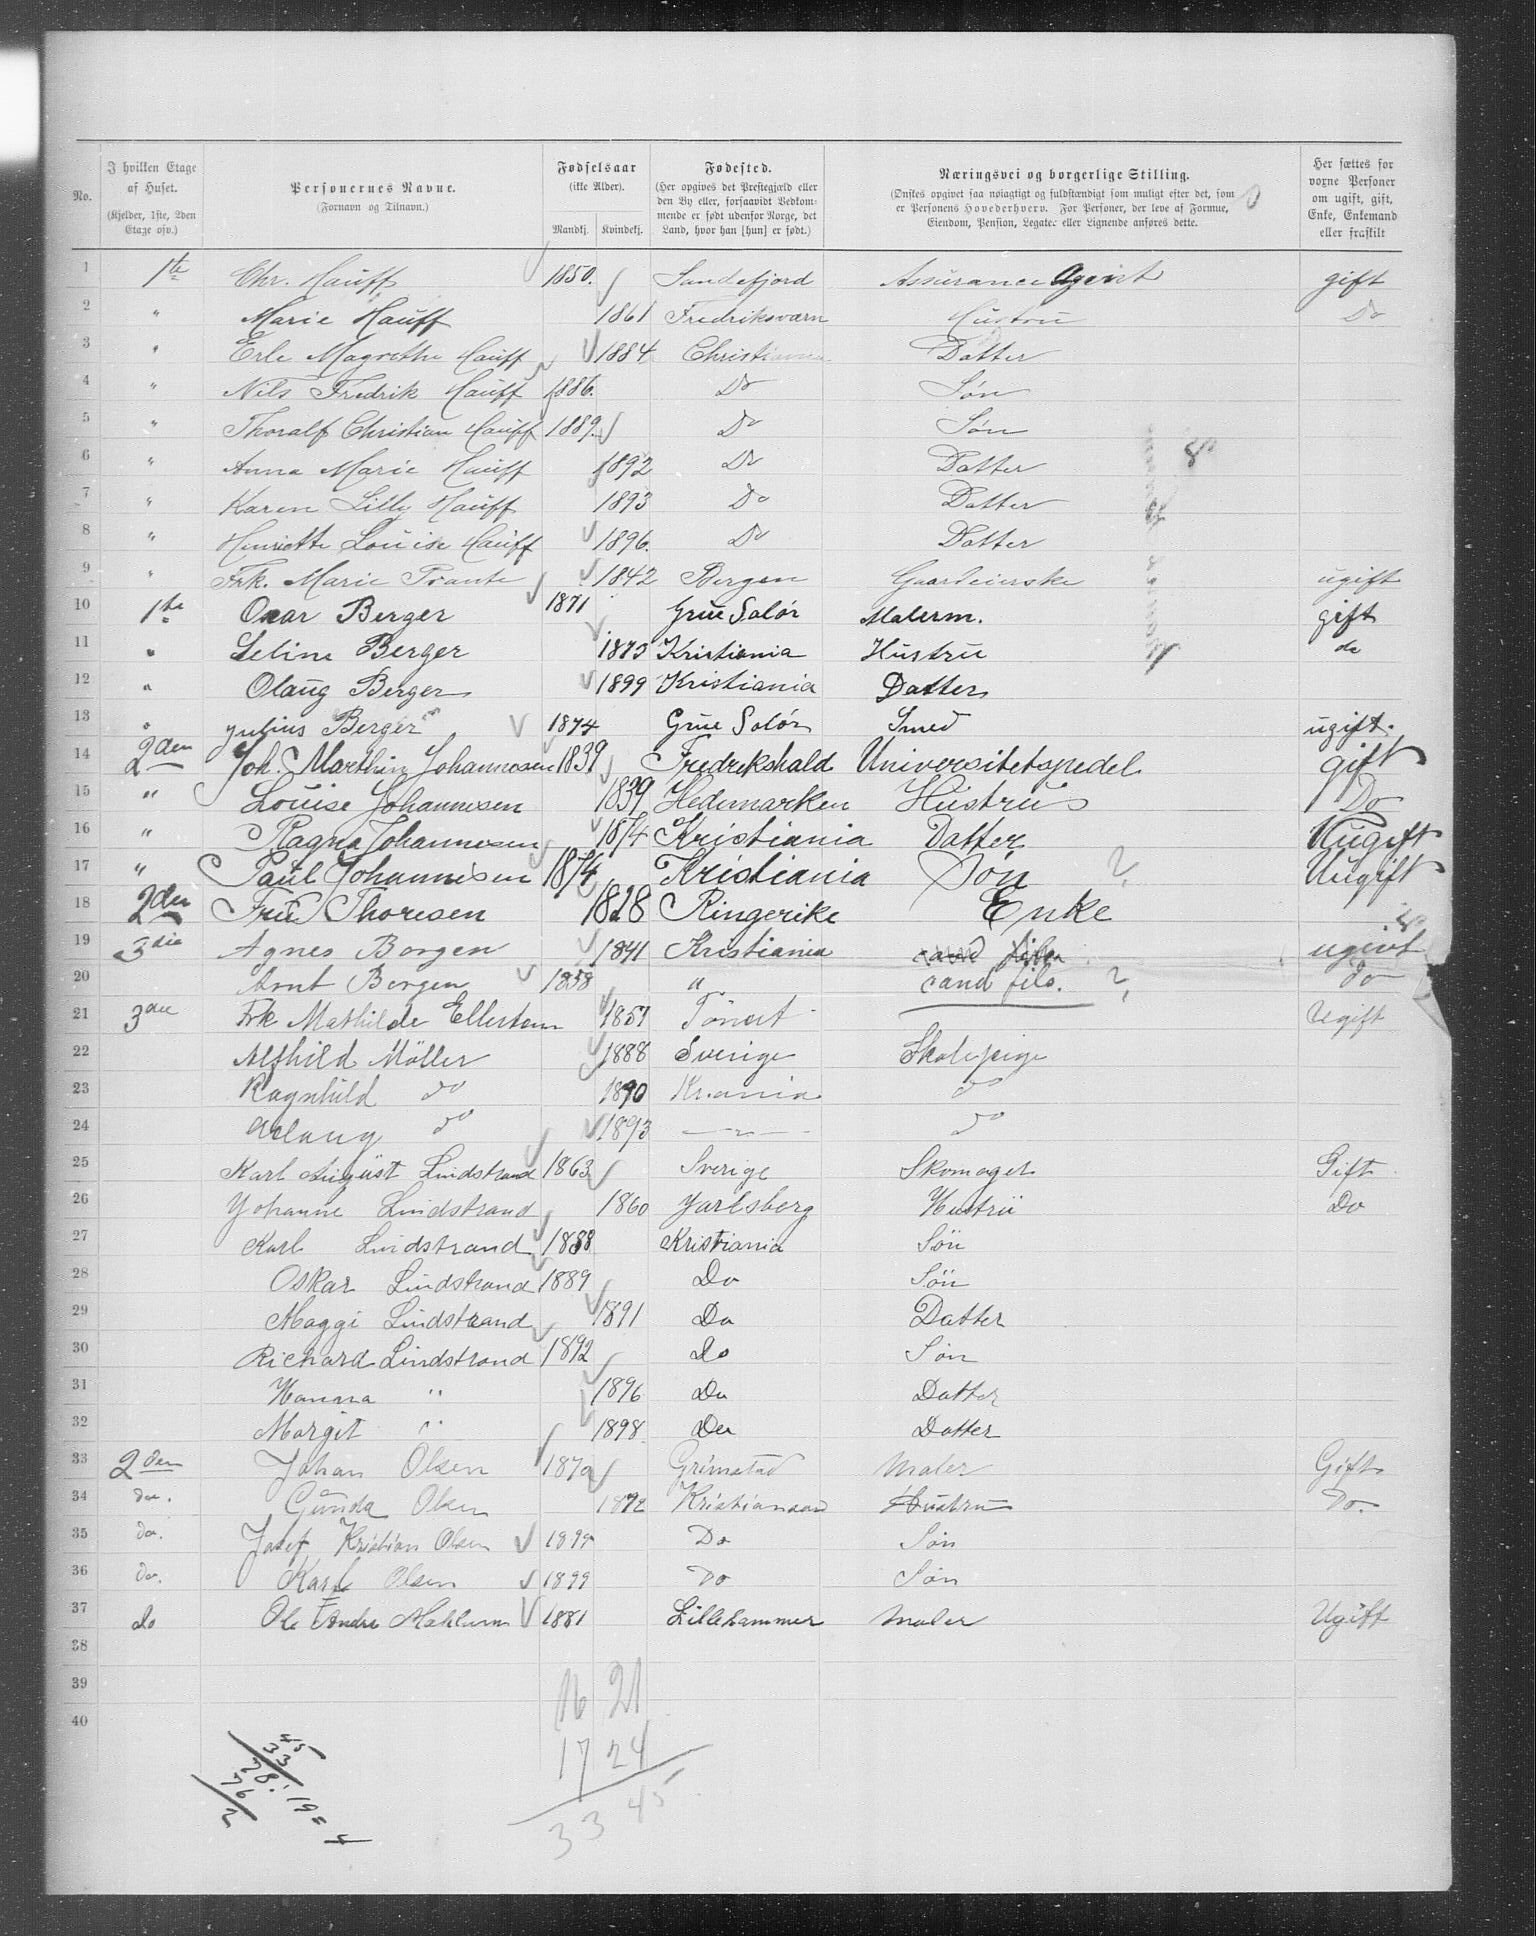 No. I hvilken Etage af Huset. (Kjelder, 1ste, 2den Etage osv.) Personernes Navne. (Fornavn og Tilnavn.) Fødselsaar (ikke Alder). Mandkj. Kvindekj. Fødested. (Her opgives det Prestegjæld eller den By eller, forsaavidt Vedkommende er født udenfor Norge, det Land, hvor han [hun] er født.) Næringsvei og borgerlige Stilling. (Ønskes opgivet saa nøiagtigt og fuldstændigt som muligt efter det, som er Personens Hovederhverv. For Personer, der leve af Formue, Eiendom, Pension, Legater eller Lignende anføres dette. Her sættes for voxne Personer om ugift, gift, Enke, Enkemand eller fraskilt
1 1te Chr. Hauff 1850. Sandefjord Assurance Agent gift
2 " Marie Hauff 1861 Fredriksværn Hustru Do
3 " Erle Magrethe Hauff 1884 Christiania Datter
4 " Nils Fredrik Hauff 1886. Do Søn
5 " Thoralf Christian Hauff 1889. Do Søn
6 " Anna Marie Hauff 1892 Do Datter 8
7 " Karen Lilly Hauff 1893 Do Datter
8 " Henriette Louise Hauff 1896. Do Datter
9 " Frk. Marie 1842 Bergen ugift
10 1te Oscar Berger 1871 Grue Solør Malerm. gift
11 " Seline Berger 1873 Kristiania Hustru do
12 " Olaug Berger 1899 Kristiania Datter
13 " Julius Berger 1874 Grue Solør Smed ugift.
14 2den Joh. Marthin Johannesen 1839 Fredrikshald Universitetspedel gift
15 " Louise Johannesen 1839 Hedemarken Hustru Do
16 " Ragna Johannesen 1874 Kristiania Datter Uugift
17 " Paul Johannesen 1874 Kristiania Søn ? Uugift
18 2den Frue Thoresen 1828 Ringerike Enke
19 3die Agnes Borgen 1841 Kristiania ugivt
20 Arnt Borgen 1858 " cand filo. ? do
21 3die Frk Mathilde 1857 Ugift
22 Alfhild Möller 1888 Sverige Skolepige
23 Ragnhild do 1890 Kr.ania do
24 Aslaug do 1893 — " — do
25 Karl August Lindstrand 1863 Sverige Skomager Gift
26 Johanne Lindstrand 1860 Jarlsberg Hustru Do
27 Karl Lindstrand 1888 Kristiania Sön
28 Oskar Lindstrand 1889 Do Sön
29 Maggi Lindstrand 1891 Do Datter
30 Richard Lindstrand 1892 do Søn
31 Hanna " 1896 Do Datter
32 Margit " 1898 Do Datter
33 2den Johan Olsen 1870 Grimstad Maler Gift
34 do. Gunda Olsen 1872 Kristiansand Hustru Do.
35 do. Josef Kristian Olsen 1899 Do Søn
36 do. Karl Olsen 1899 Do Søn
37 do Ole Andre Mæhlum 1881 Lillehammer Maler Ugift
38
39
40
16 21
17 24
33 45
45
33
78: 19 = 4
76
2